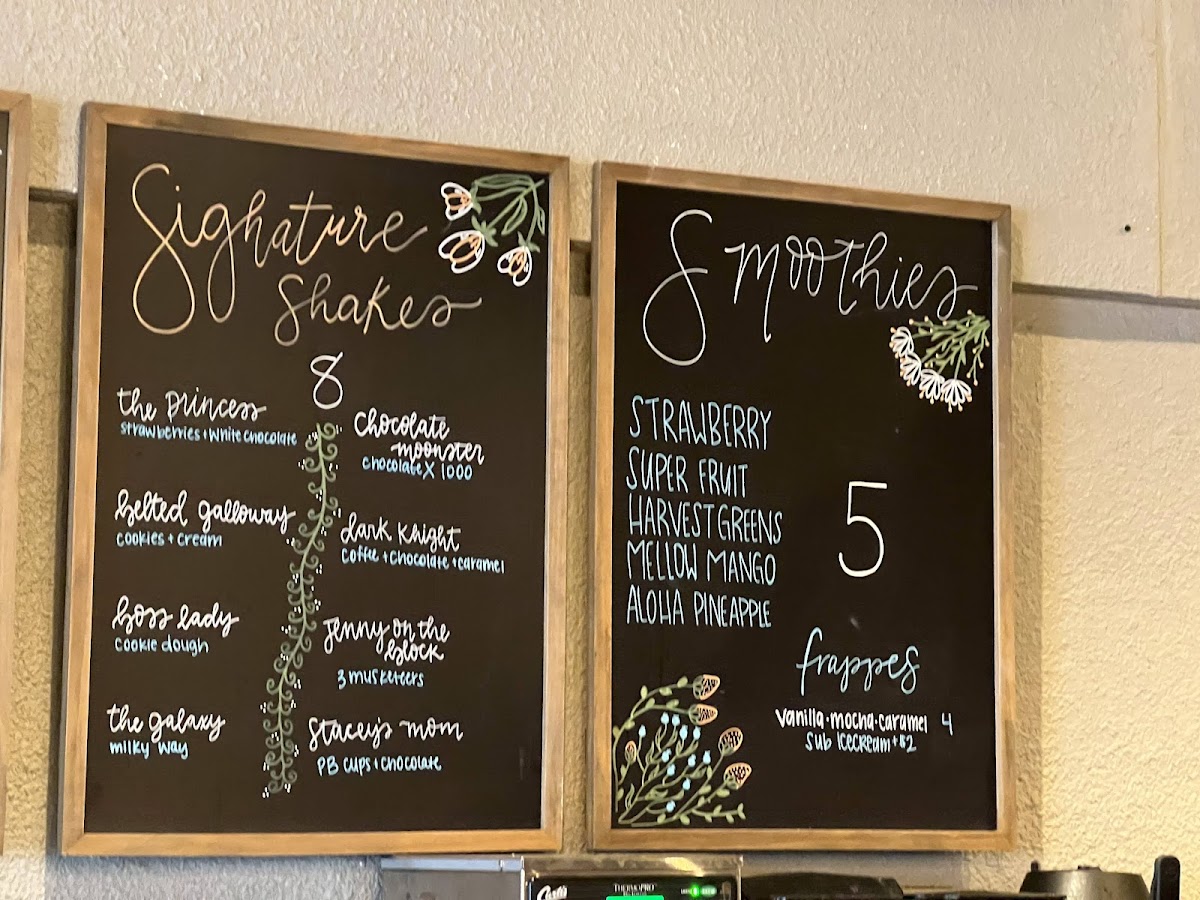 Signature
Shakes
8
the princess
strawberries + white chocolate
belted galloway
cookies + cream
boss lady
cookie dough
the galaxy
milky way
Chocolate
moonster
chocolate X 1000
dark knight
coffee + chocolate + caramel
Jenny on the
block
3 musketeers
Stacey's mom
PB cups + chocolate
Smoothies
STRAWBERRY
SUPER FRUIT
HARVEST GREENS
MELLOW MANGO
ALOHA PINEAPPLE
5
frappes
vanilla · mocha · caramel 4
Sub icecream + $2
Curtis
THERMOPRO